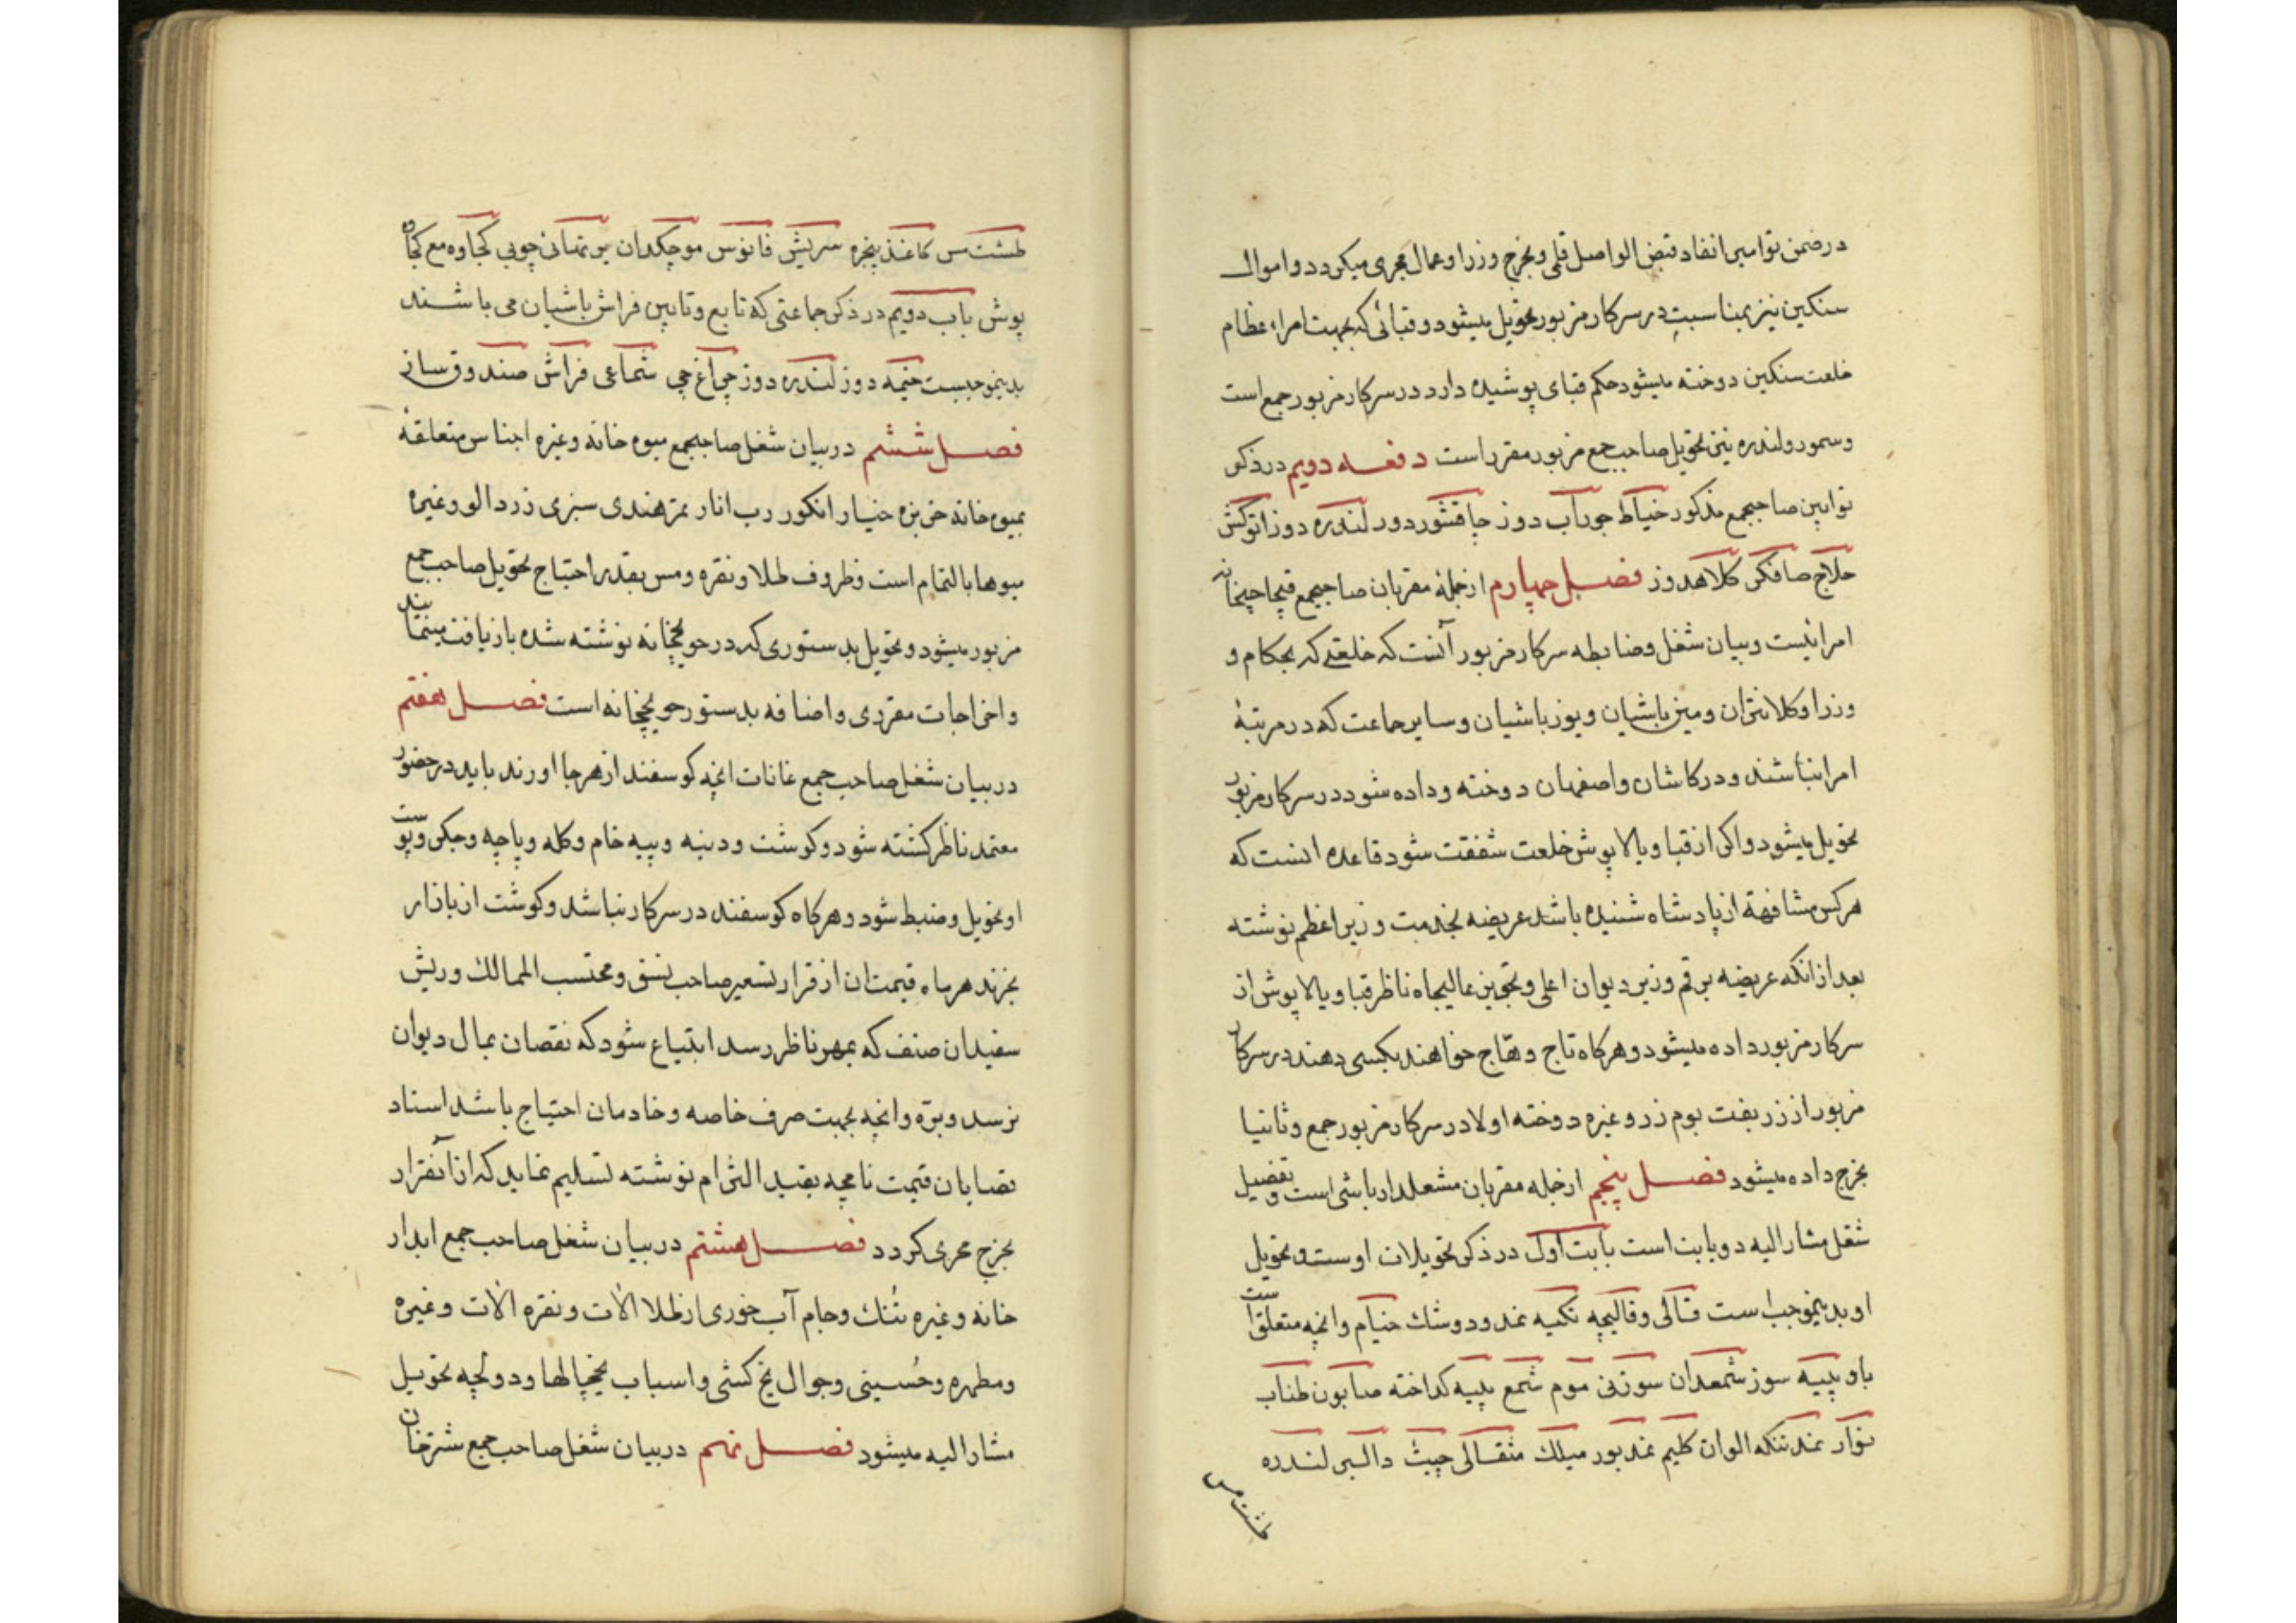 در ضمن توامیر انفاد قبض الواصل قلمی و بخرج وزرا و عمال مجری میکردد و اموال
سنکین نیز بمناسبت در سرکار مزبور تحویل میشود و قبائی که بجهت امراء عظام
خلعت سنکین دوخته میشود حکم قبای پوشیده دارد در سرکار مزبور جمع است
و سمور و لندره نیز تحویل صاحب جمع مزبور مقرر است دفعه دویم در ذکر
توابین صاحبجمع مذکور خیاط جوراب دوز چاقشور دوز لندره دوز اتوکش
حلاج صافکر کلاهدوز فصل چهارم از جمله مقربان صاحبجمع قیچاجیخانه
امرائیست و بیان شغل و ضابطه سرکار مزبور آنست که خلعتی که بحکام و
وزرا و کلانتران و مین باشیان و یوزباشیان و سایر جماعت که در مرتبهٔ
امرا نباشند و در کاشان و اصفهان دوخته و داده شود در سرکار مزبور
تحویل میشود و اکر از قبا و بالاپوش خلعت شفقت شود قاعده انست که
هرکس مشافهة از پادشاه شنیده باشد عریضه بخدمت وزیر اعظم نوشته
بعد از انکه عریضه برقم وزیر دیوان اعلی و تجویز عالیجاه ناظر قبا و بالاپوش از
سرکار مزبور داده میشود و هرکاه تاج و طاج خواهند بکسی دهند در سرکار
مزبور از زربفت بوم زر و غیره دوخته اولا در سرکار مزبور جمع و ثانیا
بخرج داده میشود فصل پنجم از جمله مقربان مشعلدار باشی است و تفصیل
شغل مشار الیه دو بابت است بابت اول در ذکر تحویلات اوست و تحویل
او بدینموجب است قالی و قالیچه تکیه نمد و دوشک خیام و انچه متعلق است
باو پیپه سوز شمعدان سوزنی موم شمع پیه کداخته صابون طناب
نوار نمد تنکه الوان کلیم نمد بور میلک مثقالی چیث دالبر لندره
طشت مس
طشت مس کاغذ پنجره سریش فانوس موچکدان چوبی کجاوه مع کجاوه
پوش باب دویم در ذکر جماعتی که تابع و تابین فراش باشیان می باشند
بدینموجبست خیمه دوز لندره دوز چراغچی شماعی فراش صندوق ساز
فصل ششم در بیان شغل صاحبجمع میوه خانه و غیره اجناس متعلقهٔ
بمیوه خانه خربزه خیار انکور رب انار تمرهندی سبزی زردالو و غیره
میوها بالتمام است و ظروف طلا و نقره و مس بقدر احتیاج تحویل صاحب جمع
مزبور میشود و تحویل بدستوری که در حویجخانه نوشته شده بازیافت مینمایند
و اخراجات مقرری و اضافه بدستور حویجخانه است فصل هفتم
در بیان شغل صاحب جمع غانات انچه کوسفند از هر جا اورند باید در حضور
معتمد ناظر کشته شود و کوشت و دنبه و پیه خام و کله و پاچه و جکر و پوست
او تحویل و ضبط شود و هرکاه کوسفند در سرکار نباشد و کوشت از بازار
بخرند هر ماه قیمت ان از قرار تسعیر صاحب نسق و محتسب الممالک و ریش
سفیدان صنف که بمهر ناظر رسد ابتیاع شود که نقصان بمال دیوان
نرسد و بره و انچه بجهت صرف خاصه و خادمان احتیاج باشد استاد
قصابان قیمت نامچه بقید التزام نوشته تسلیم نماید که از آنقرار
بخرج مجری کردد فصل هشتم در بیان شغل صاحب جمع ابدار
خانه و غیره تنک و جام آب خوری از طلا الات و نقره الات و غیره
و مطهره و حسینی و جوال یخ کشی و اسباب یخچالها و دولچه تحویل
مشار الیه میشود فصل نهم در بیان شغل صاحب جمع شترخان